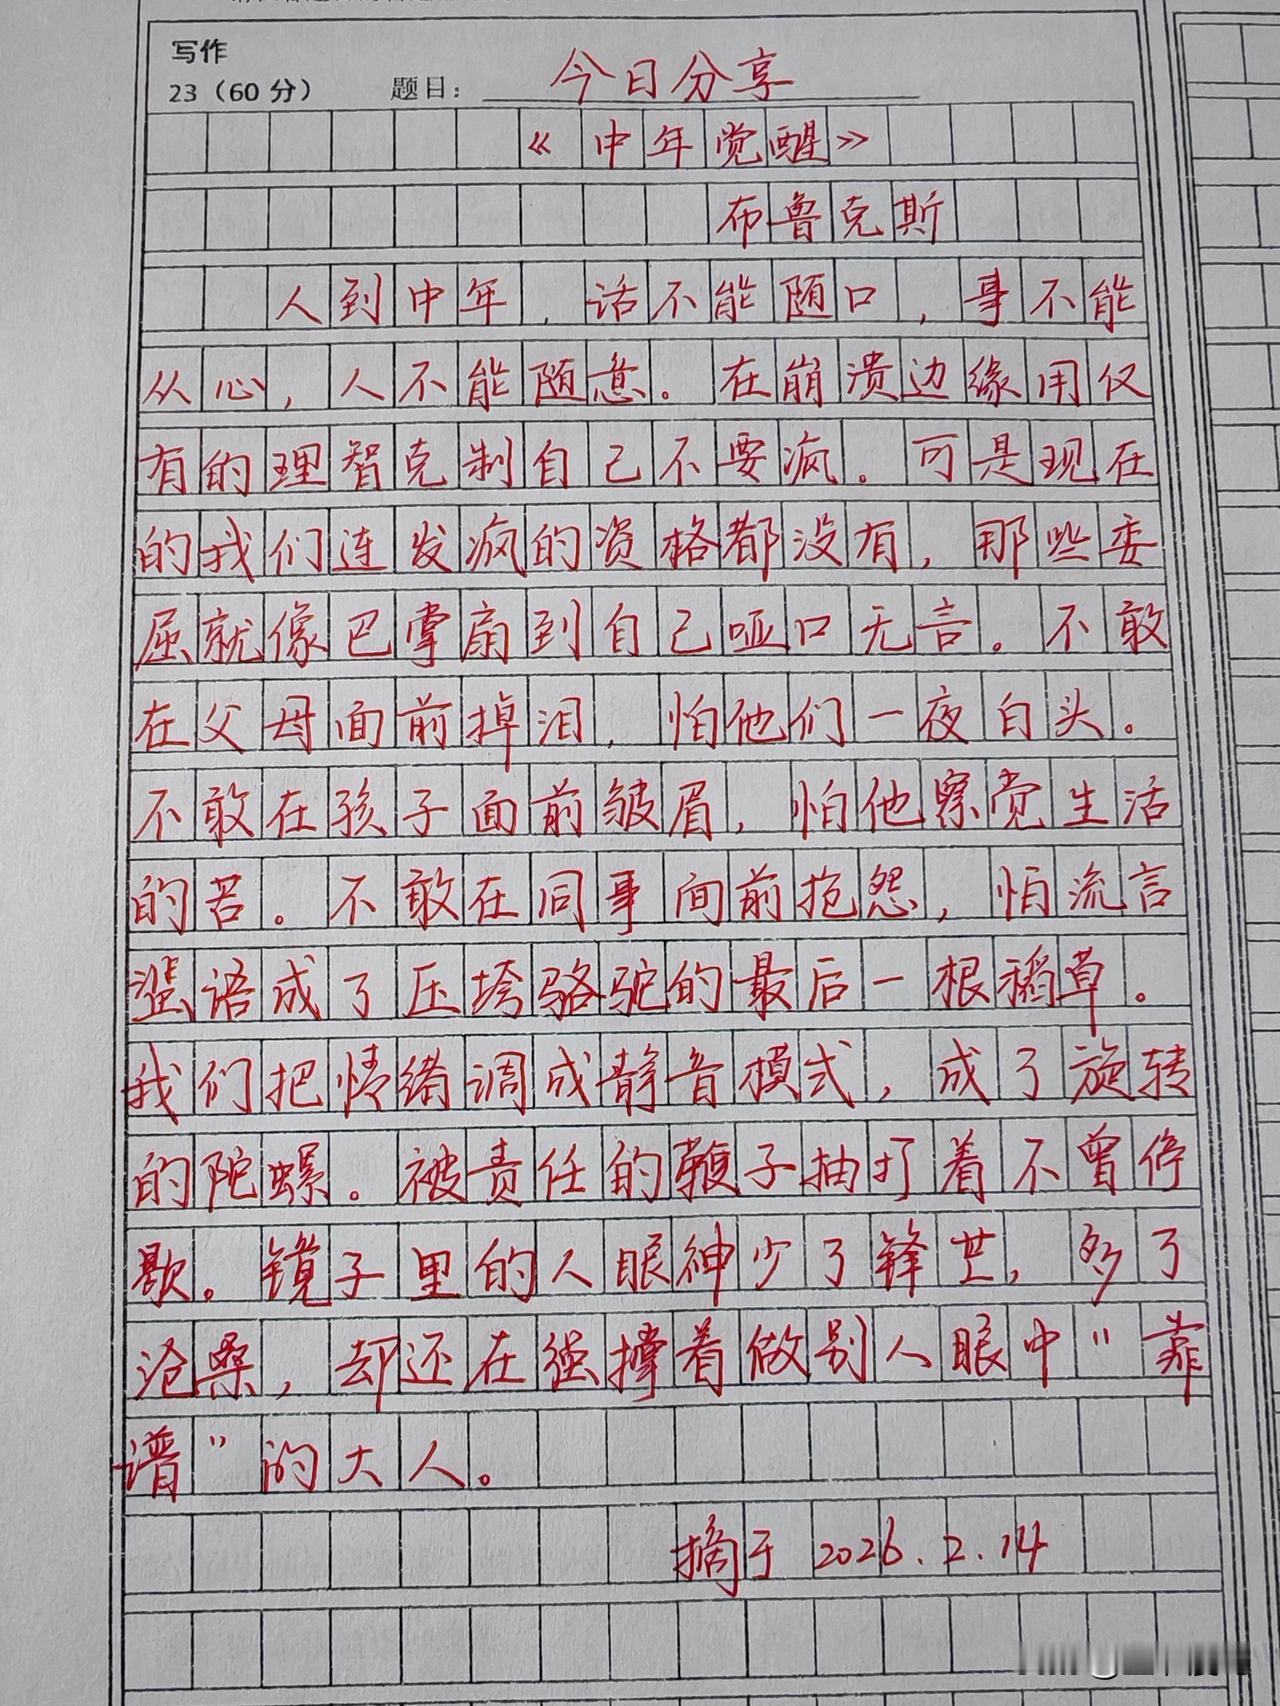 写作
23（60分） 题目：今日分享
《中年觉醒》
布鲁克斯
人到中年，话不能随口，事不能
从心，人不能随意。在崩溃边缘用仅
有的理智克制自己不要疯。可是现在
的我们连发疯的资格都没有，那些委
屈就像巴掌扇到自己哑口无言。不敢
在父母面前掉泪，怕他们一夜白头。
不敢在孩子面前皱眉，怕他察觉生活
的苦。不敢在同事间前抱怨，怕流言
蜚语成了压垮骆驼的最后一根稻草。
我们把情绪调成静音模式，成了旋转
的陀螺。被责任的鞭子抽打着不曾停
歇。镜子里的人眼神少了锋芒，多了
沧桑，却还在强撑着做别人眼中“靠
谱”的大人。
摘于 2026.2.14